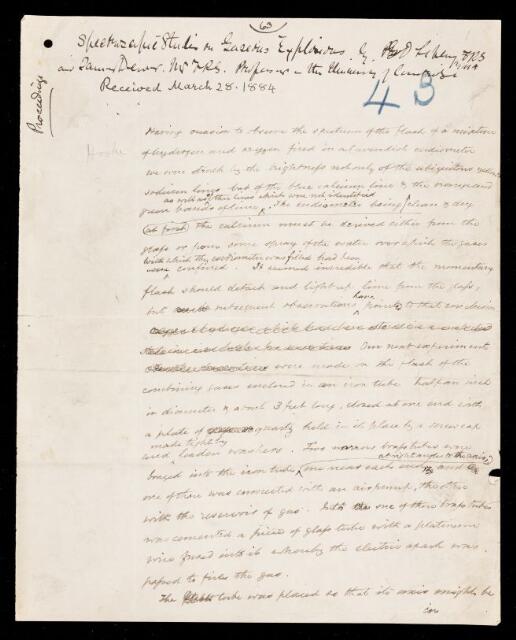 63
Spectroscopic Studies on Gaseous Explosions By D Liveing FRS
and James Dewar. MA FRS. Professors in the University of Cambridge
Received March 28. 1884
Proceedings
43
Hooke
Having occasion to observe the spectrum of the flash of a mixture
of hydrogen and oxygen fired in a Cavendish eudiometer
we were struck by the brightness not only of the ubiquitous
sodium lines but of the blue calcium line & the orange and
as well as of other lines which were not identified
green bands of lime. The eudiometer being clean & dry
(at first) the calcium must be derived either from the
glass or from some spray of the water over which the gases
with which the eudiometer was filled had been
confined. It seemed incredible that the momentary
flash should detach and light up lime from the glass,
have
but subsequent observations pointed to that conclusion
Our next experiments
were made on the flash of the
combining gases enclosed in an iron tube half an inch
in diameter & about 3 feet long, closed at one end with
a plate of quartz held in its place by a screw cap
made tight by
and leaden washers. Two narrow brass tubes were
at right angles to the axis
brazed into the iron tube one near each end and
one of them was connected with an airpump, the other
with the reservoir of gas. Into one of these brass tubes
was cemented a piece of glass tube with a platinum
wire fused into it whereby the electric spark was
passed to fire the gas.
The tube was placed so that its axis might be
in